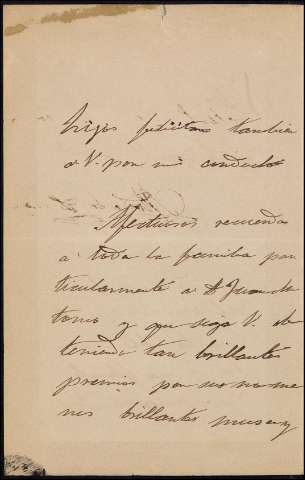 hijos felicitan tambien
a V. por mi conducto
Afectuosos recuerdos
a toda la familia par
ticularmente a Dn Juan
tonio y que siga V. ob
teniendo tan brillantes
premios por no me
nos brillantes